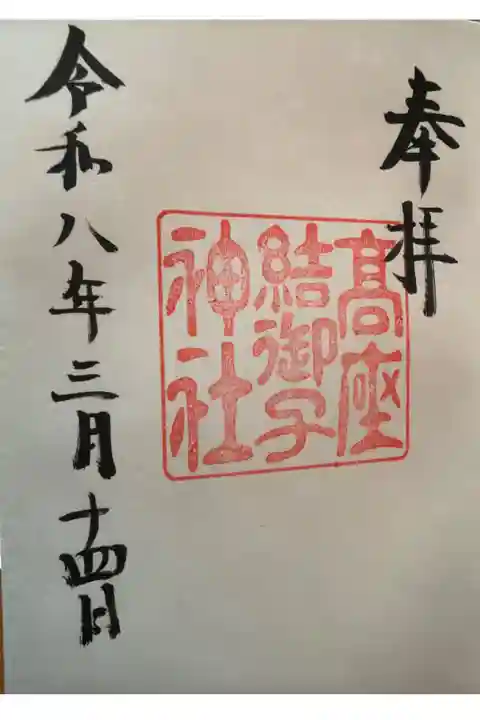 奉拝
髙座
結御子
神社
令和八年三月十四日